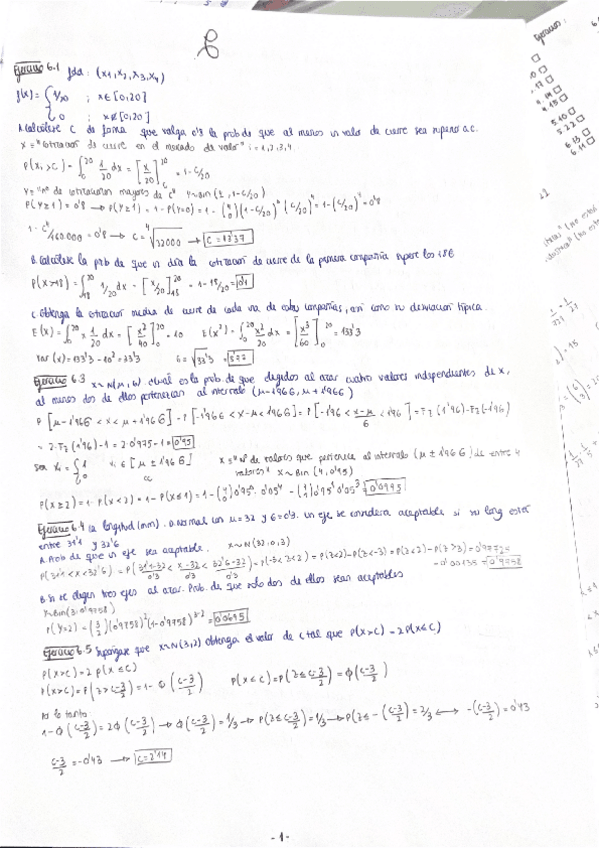 6
Ejercicio 6.1 fda: (x1, x2, x3, x4)
f(x) = { 1/20 ; x∈[0,20]
0 ; x∉[0,20]
A. Calcúlese C de forma que valga 0'8 la prob de que al menos un valor de cierre sea superior a c.
X = "cotización de cierre en el mercado de valor" i = 1,2,3,4.
P(Xi > C) = ∫_c^20 1/20 dx = [x/20]_c^20 = 1 - C/20
Y = "nº de cotizaciones mayores de c" Y~Bin (4, 1-C/20)
P(Y≥1) = 0'8 → P(Y≥1) = 1 - P(Y=0) = 1 - (4 0)(1-C/20)^0 (C/20)^4 = 1-(C/20)^4 = 0'8
1 - C^4/160.000 = 0'8 → C = ⁴√32000 → C = 13'37
B. Calcúlese la prob de que un día la cotización de cierre de la primera compañía supere los 18€
P(X>18) = ∫_18^20 1/20 dx = [x/20]_18^20 = 1 - 18/20 = 0'1
C. Obtenga la cotización media de cierre de cada una de estas compañías, así como su desviación típica.
E(X) = ∫_0^20 x 1/20 dx = [x²/40]_0^20 = 10 E(X²) = ∫_0^20 x²/20 dx = [x³/60]_0^20 = 133'3
Var(X) = 133'3 - 10² = 33'3 σ = √33'3 = 5'77
Ejercicio 6.3 X~N(μ, σ) ¿cuál es la prob. de que elegidos al azar cuatro valores independientes de X,
al menos dos de ellos pertenezcan al intervalo (μ-1'96σ, μ+1'96σ)
P[μ-1'96σ < X < μ+1'96σ] = P[-1'96σ < X-μ < 1'96σ] = P[-1'96 < X-μ/σ < 1'96] = Fz(1'96) - Fz(-1'96)
= 2·Fz(1'96) - 1 = 2·0'975 - 1 = 0'95
Sea Xi = { 1 xi ∈ [μ ± 1'96σ] X = "nº de valores que pertenece al intervalo (μ ± 1'96σ) de entre 4
0 valores" X~Bin (4, 0'95)
P(X≥2) = 1 - P(X<2) = 1 - P(X≤1) = 1 - (4 0) 0'95^0 · 0'05^4 - (4 1) 0'95^1 0'05^3 = 0'9995
Ejercicio 6.4 la longitud (mm). a normal con μ=32 y σ=0'3. Un eje se considera aceptable si su long está
entre 31'1 y 32'6
A. Prob de que un eje sea aceptable. X~N(32, 0,3)
P(31'1 < X < 32'6) = P(31'1-32/0'3 < X-32/0'3 < 32'6-32/0'3) = P(-3<Z<2) = P(Z<2) - P(Z<-3) = P(Z<2) - P(Z>3) = 0'9772-
-0'00135 = 0'9758
B. Si se eligen tres ejes al azar. Prob. de que solo dos de ellos sean aceptables
Y~Bin(3, 0'9758)
P(Y=2) = (3 2)(0'9758)²(1-0'9758)^3-2 = 0'0695
Ejercicio 6.5 Supóngase que X~N(3,2) obtenga el valor de c tal que P(X>C) = 2P(X≤C)
P(X>C) = 2P(X≤C)
P(X>C) = P(Z > C-3/2) = 1 - Φ(C-3/2) P(X≤C) = P(Z ≤ C-3/2) = Φ(C-3/2)
Por lo tanto:
1 - Φ(C-3/2) = 2Φ(C-3/2) → Φ(C-3/2) = 1/3 → P(Z ≤ C-3/2) = 1/3 → P(Z ≤ -(C-3/2)) = 2/3 ⟷ -(C-3/2) = 0'43
C-3/2 = -0'43 → C = 2'14
- 1 -